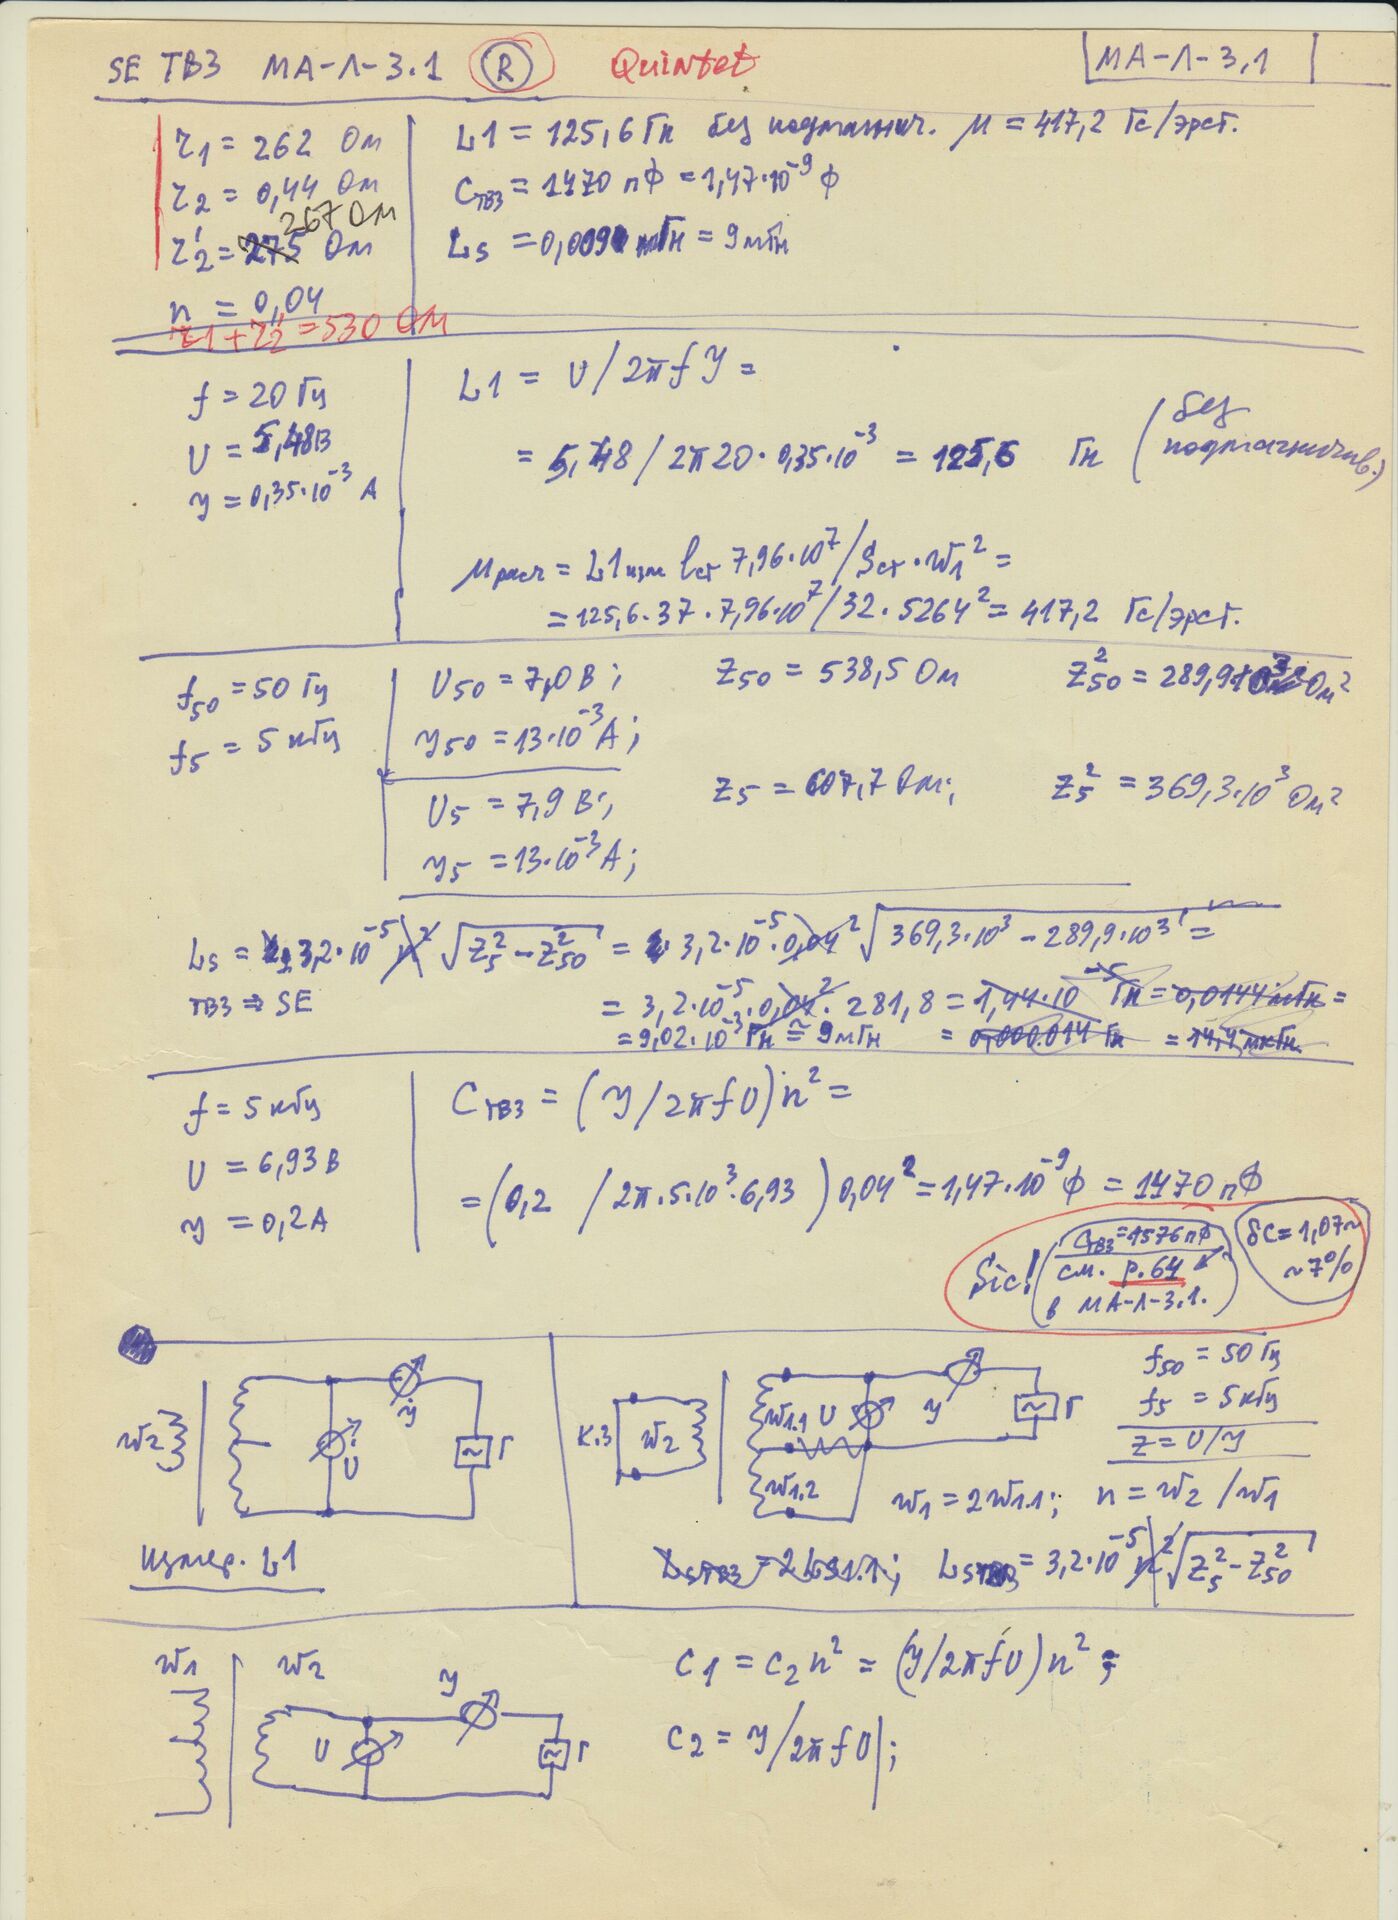 SE ТВЗ МА-Л-3.1 (R) Quintet
МА-Л-3,1
r1 = 262 Ом
r2 = 0,44 Ом
267 Ом
r2' = 275 Ом
n = 0,04
r1+r2' = 530 Ом
L1 = 125,6 Гн без подмагнич. μ = 417,2 Гс/эрст.
CТВЗ = 1470 пФ = 1,47·10⁻⁹ Ф
Ls = 0,009 Гн = 9 мГн
f = 20 Гц
U = 5,48В
У = 0,35·10⁻³ А
L1 = U/2πfУ =
= 5,48/2π20·0,35·10⁻³ = 125,6 Гн (без подмагничив.)
μрасч = L1изм lст 7,96·10⁷/Sст·w1² =
= 125,6·37·7,96·10⁷/32·5264² = 417,2 Гс/эрст.
f50 = 50 Гц
f5 = 5 кГц
U50 = 7,0 В; Z50 = 538,5 Ом Z²50 = 289,9·10³ Ом²
У50 = 13·10⁻³ А;
U5 = 7,9 В; Z5 = 607,7 Ом; Z5² = 369,3·10³ Ом²
У5 = 13·10⁻³ А;
Ls = 3,2·10⁻⁵ n² √Z5² − Z²50 = 3,2·10⁻⁵·0,04² √369,3·10³ − 289,9·10³ =
ТВЗ ⇒ SE
= 3,2·10⁻⁵·0,04²·281,8 = 1,44·10⁻⁵ Гн = 0,0144 мГн =
= 9,02·10⁻³ Гн ≅ 9 мГн = 0,000.014 Гн = 14,4 мкГн.
f = 5 кГц
U = 6,93 В
У = 0,2 А
CТВЗ = (У/2πfU)n² =
= (0,2 / 2π·5·10³·6,93) 0,04² = 1,47·10⁻⁹ Ф = 1470 пФ
Sic! (CТВЗ = 1576 пФ
см. р.64
в МА-Л-3.1.)
δC = 1,07 ~
~ 7%
w2
У
U
Г
Измер. L1
К.З
w2
w1.1
w1.2
U
У
Г
f50 = 50 Гц
f5 = 5 кГц
Z = U/У
w1 = 2w1.1; n = w2/w1
LsТВЗ = 2Ls1.1; LsТВЗ = 3,2·10⁻⁵ n² √Z5² − Z²50
w1
w2
У
U
Г
C1 = C2n² = (У/2πfU)n²;
C2 = У/2πfU;